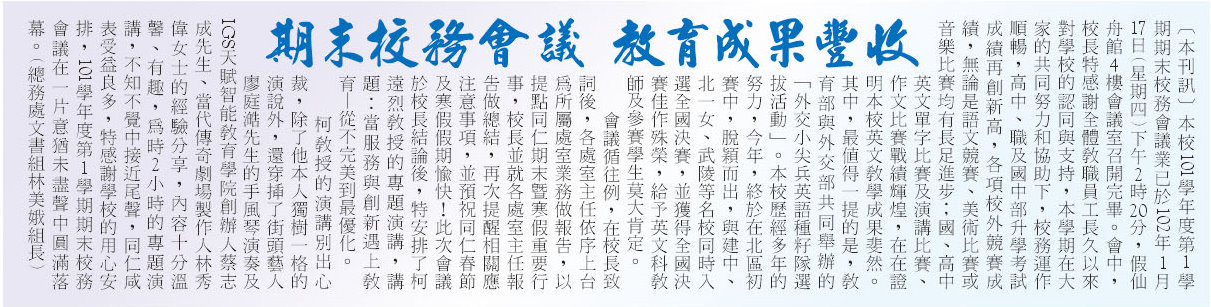 期末校務會議 教育成果豐收
〔本刊訊〕本校101學年度第1學
期期末校務會議業已於102年1月
17日(星期四)下午2時20分,假仙
舟館4樓會議室召開完畢。會中,
校長特感謝全體教職員工長久以來
對學校的認同與支持,本學期在大
家的共同努力和協助下,校務運作
順暢,高中、職及國中部升學考試
成績再創新高,各項校外競賽成
績,無論是語文競賽、美術比賽或
音樂比賽均有長足進步;國、高中
英文單字比賽及演講比賽、
作文比賽戰績輝煌,在在證
明本校英文教學成果斐然。
其中,最值得一提的是,教
育部與外交部共同舉辦的
「外交小尖兵英語種籽隊選
拔活動」。本校歷經多年的
努力,今年,終於在北區初
賽中,脫穎而出,與建中、
北一女、武陵等名校同時入
選全國決賽,並獲得全國決
賽佳作殊榮,給予英文科教
師及參賽學生莫大肯定。
會議循往例,在校長致
詞後,各處室主任依序上台
為所屬處室業務做報告,以
提點同仁期末暨寒假重要行
事,校長並就各處室主任報
告做總結,再次提醒相關應
注意事項,並預祝同仁春節
及寒假假期愉快!此次會議
於校長結論後,特安排了柯
遠烈教授的專題演講,講
題:當服務與創新遇上教
育—從不完美到最優化。
柯教授的演講別出心
裁,除了他本人獨樹一格的
演說外,還穿插了街頭藝人
廖庭澔先生的手風琴演奏及
IGS天賦智能教育學院創辦人蔡志
成先生、當代傳奇劇場製作人林秀
偉女士的經驗分享,內容十分溫
馨、有趣,為時2小時的專題演
講,不知不覺中接近尾聲,同仁咸
表受益良多,特感謝學校的用心安
排,101學年度第1學期期末校務
會議在一片意猶未盡聲中圓滿落
幕。(總務處文書組林美娥組長)